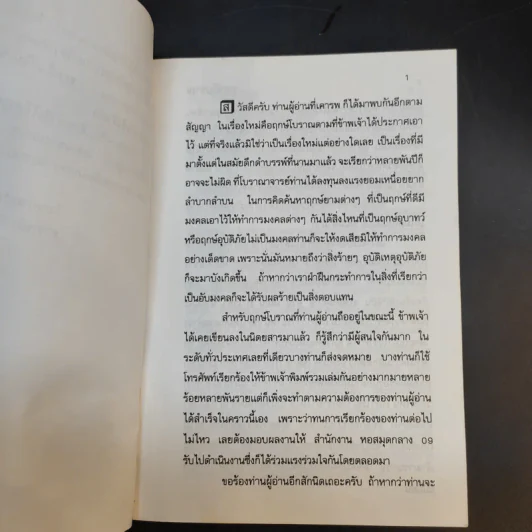 1
สวัสดีครับ ท่านผู้อ่านที่เคารพ ก็ได้มาพบกันอีกตาม
สัญญา ในเรื่องใหม่คือฤกษ์โบราณตามที่ข้าพเจ้าได้ประกาศเอา
ไว้ แต่ที่จริงแล้วมิใช่ว่าเป็นเรื่องใหม่แต่อย่างใดเลย เป็นเรื่องที่มี
มาตั้งแต่ในสมัยดึกดำบรรพ์ที่นานมาแล้ว จะเรียกว่าหลายพันปีก็
อาจจะไม่ผิด ที่โบราณาจารย์ท่านได้ลงทุนลงแรงยอมเหนื่อยยาก
ลำบากลำบน ในการคิดค้นหาฤกษ์ยามต่างๆ ที่เป็นฤกษ์ที่ดีมี
มงคลเอาไว้ให้ทำการมงคลต่างๆ กันได้สิ่งไหนที่เป็นฤกษ์อุบาทว์
หรือฤกษ์อุบัติภัยไม่เป็นมงคลท่านก็จะให้งดเสียมิให้ทำการมงคล
อย่างเด็ดขาด เพราะนั่นมันหมายถึงว่าสิ่งร้ายๆ อุบัติเหตุอุบัติภัย
ก็จะมาบังเกิดขึ้น ถ้าหากว่าเราฝ่าฝืนกระทำการในสิ่งที่เรียกว่า
เป็นอัปมงคลก็จะได้รับผลร้ายเป็นสิ่งตอบแทน
สำหรับฤกษ์โบราณที่ท่านผู้อ่านถืออยู่ในขณะนี้ ข้าพเจ้า
ได้เคยเขียนลงในนิตยสารมาแล้ว ก็รู้สึกว่ามีผู้สนใจกันมาก ใน
ระดับทั่วประเทศเลยทีเดียวบางท่านก็ส่งจดหมาย บางท่านก็ใช้
โทรศัพท์เรียกร้องให้ข้าพเจ้าพิมพ์รวมเล่มกันอย่างมากมายหลาย
ร้อยหลายพันรายแต่ก็เพิ่งจะทำตามความต้องการของท่านผู้อ่าน
ได้สำเร็จในคราวนี้เอง เพราะว่าทนการเรียกร้องของท่านต่อไป
ไม่ไหว เลยต้องมอบผลงานให้ สำนักงาน หอสมุดกลาง 09
รับไปดำเนินงานซึ่งก็ได้ร่วมแรงร่วมใจกันโดยตลอดมา
ขอร้องท่านผู้อ่านอีกสักนิดเถอะครับ ถ้าหากว่าท่านจะ